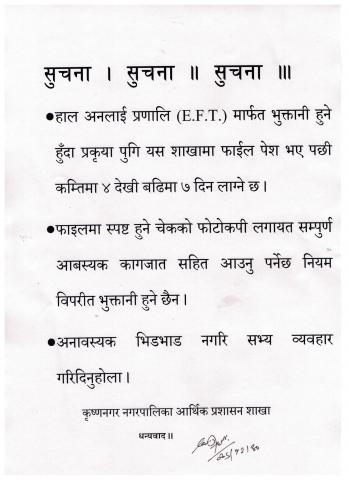 सुचना । सुचना ॥ सुचना ॥।
●हाल अनलाई प्रणालि (E.F.T.) मार्फत भुक्तानी हुने
हुँदा प्रकृया पुगि यस शाखामा फाईल पेश भए पछी
कम्तिमा ४ देखी बढिमा ७ दिन लाग्ने छ।
●फाइलमा स्पष्ट हुने चेकको फोटोकपी लगायत सम्पुर्ण
आबस्यक कागजात सहित आउनु पर्नेछ नियम
विपरीत भुक्तानी हुने छैन।
●अनावस्यक भिडभाड नगरि सभ्य व्यवहार
गरिदिनुहोला।
कृष्णनगर नगरपालिका आर्थिक प्रशासन शाखा
धन्यवाद॥